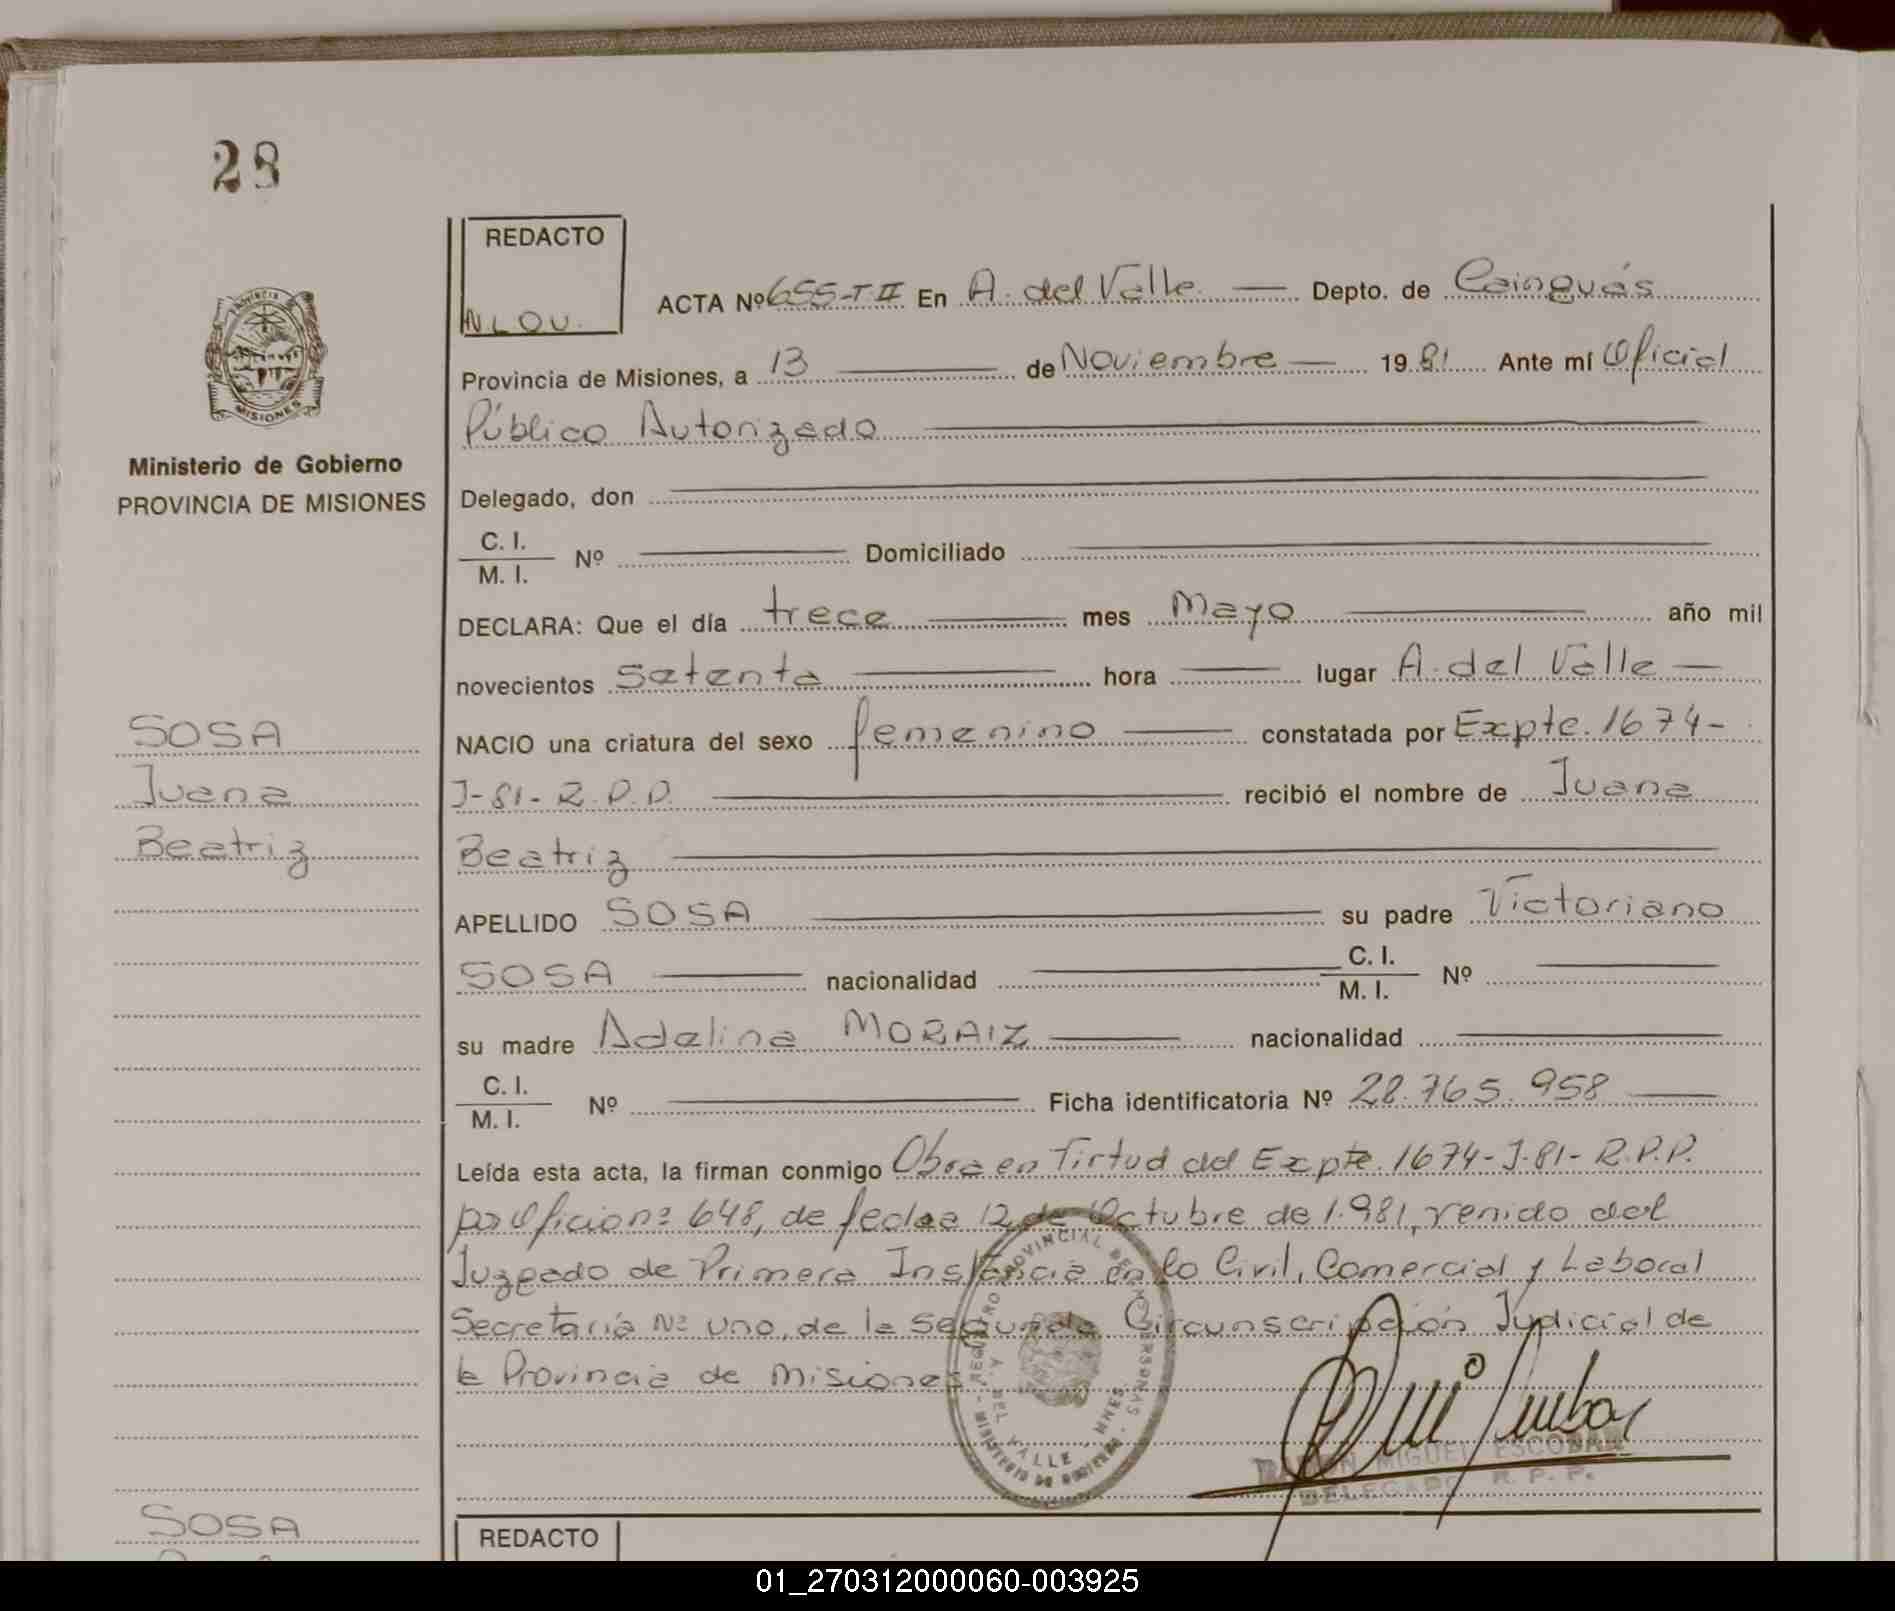 28
REDACTO
N L O V.
ACTA Nº 655-T-II En A. del Valle Depto. de Cainguás
Provincia de Misiones, a 13 de Noviembre 1981 Ante mí Oficial
Público Autorizado
PROVINCIA
MISIONES
Ministerio de Gobierno
PROVINCIA DE MISIONES
Delegado, don
C. I.
M. I. Nº Domiciliado
DECLARA: Que el día trece mes Mayo año mil
novecientos setenta hora lugar A. del Valle
SOSA
Juana
Beatriz
NACIO una criatura del sexo femenino constatada por Expte. 1674-
J-81-R.P.P. recibió el nombre de Juana
Beatriz
APELLIDO SOSA su padre Victoriano
SOSA nacionalidad C. I. M. I. Nº
su madre Adelina MORAIZ nacionalidad
C. I.
M. I. Nº Ficha identificatoria Nº 28.765.958
Leída esta acta, la firman conmigo Obra en Tirtud del Expte. 1674-J-81-R.P.P.
por Oficio nº 648, de fecha 12 de Octubre de 1.981, venido del
Juzgado de Primera Instancia en lo Civil, Comercial y Laboral
Secretaría Nº uno, de la segunda Circunscripción Judicial de
la Provincia de Misiones
REGISTRO PROVINCIAL DE LAS PERSONAS
A. DEL VALLE - MNES.
MINISTERIO DE GOBIERNO
RAMON MIGUEL ESCOBAR
DELEGADO R. P. P.
SOSA
REDACTO
01_270312000060-003925